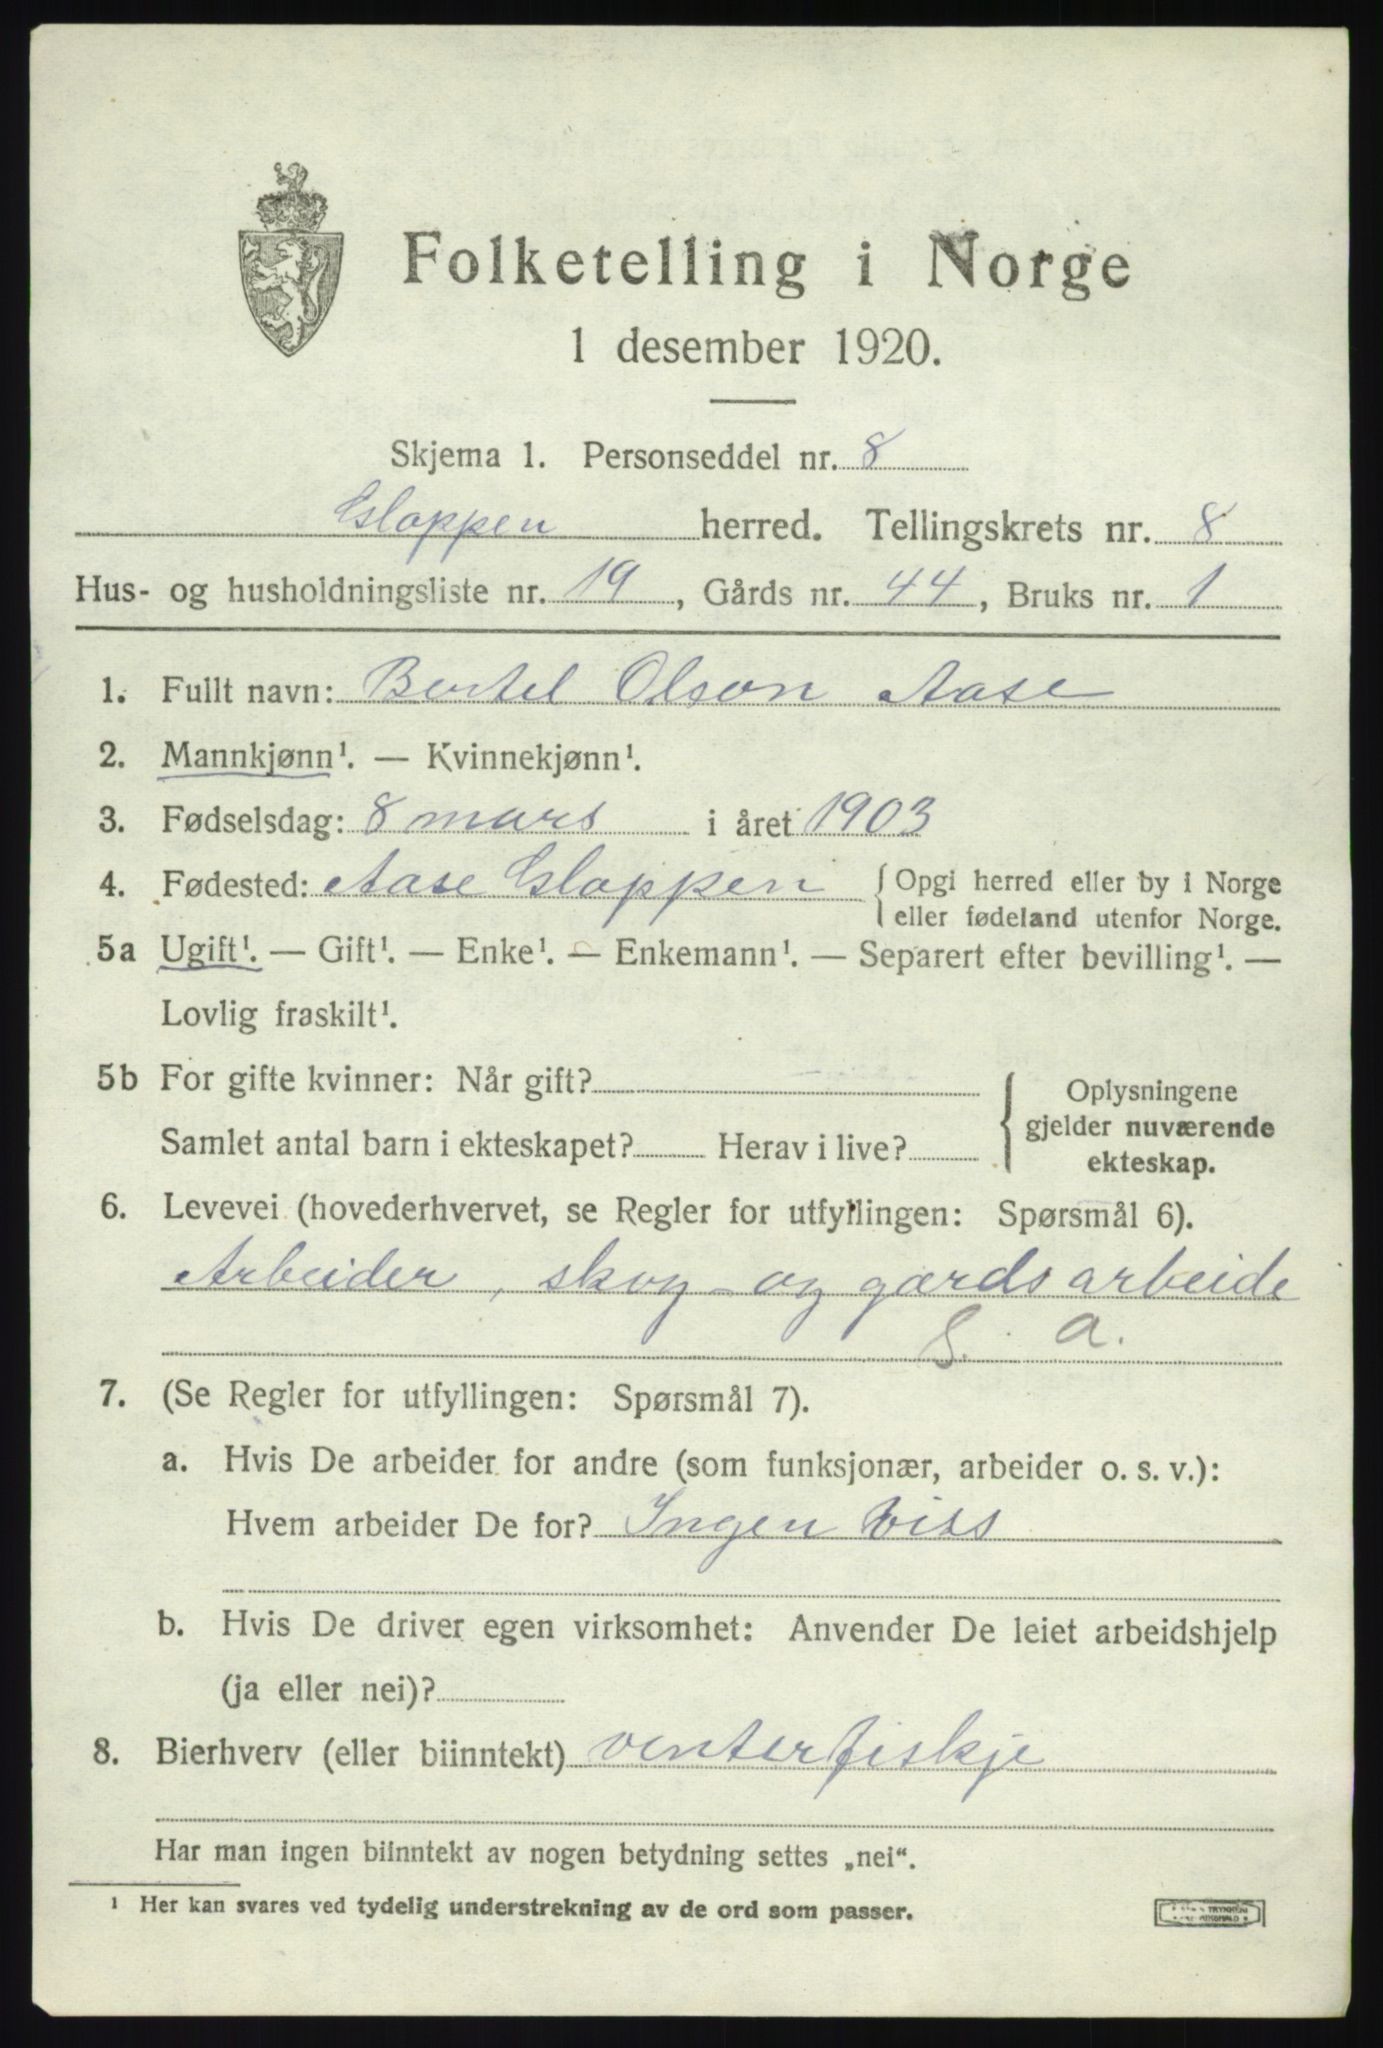 Folketelling i Norge
1 desember 1920.
Skjema 1. Personseddel nr. 8
Gloppen herred. Tellingskrets nr. 8
Hus- og husholdningsliste nr. 19, Gårds nr. 44, Bruks nr. 1
1. Fullt navn: Bertel Olson Aase
2. Mannkjønn¹. — Kvinnekjønn¹.
3. Fødselsdag: 8 mars i året 1903
4. Fødested: Aase Gloppen { Opgi herred eller by i Norge
eller fødeland utenfor Norge.
5a Ugift¹. — Gift¹. — Enke¹. — Enkemann¹. — Separert efter bevilling¹. —
Lovlig fraskilt¹.
5b For gifte kvinner: Når gift? { Oplysningene
gjelder nuværende
Samlet antal barn i ekteskapet? Herav i live?
ekteskap.
6. Levevei (hovederhvervet, se Regler for utfyllingen: Spørsmål 6).
Arbeider, skog- og gardsarbeide
G. a.
7. (Se Regler for utfyllingen: Spørsmål 7).
a. Hvis De arbeider for andre (som funksjonær, arbeider o. s. v.):
Hvem arbeider De for? Ingen viss
b. Hvis De driver egen virksomhet: Anvender De leiet arbeidshjelp
(ja eller nei)?
8. Bierhverv (eller biinntekt) venterfiskje
Har man ingen biinntekt av nogen betydning settes „nei“.
¹ Her kan svares ved tydelig understrekning av de ord som passer.